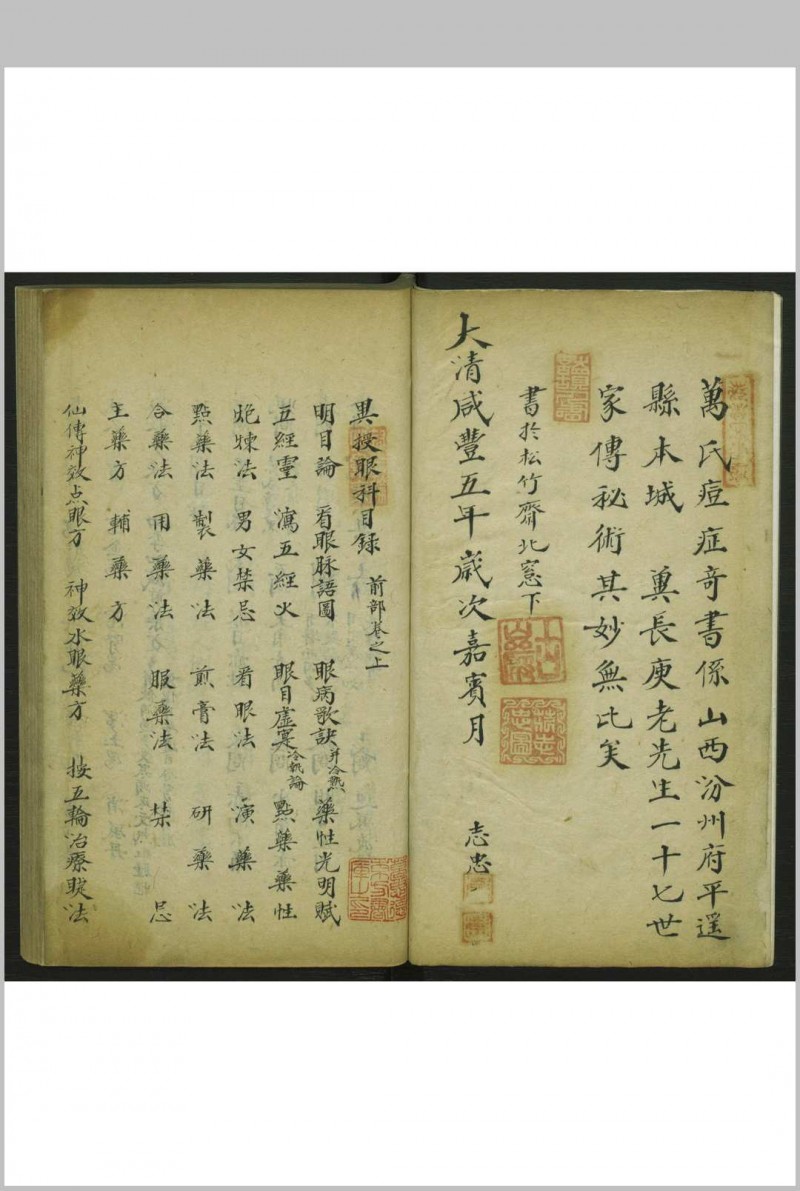 萬氏痘症奇書係山西汾州府平遥
縣本城 冀長庚老先生一十七世
家傳秘術其妙無比矣
書於松竹齋北窓下
大清咸豐五年歲次嘉賓月
志忠
異授眼科目録 前部卷之上
明目論 看眼脉語圖 眼病歌訣并冷熱 藥性光明賦
五經靈 瀉五經火 眼目虛寔冷熱論 點藥藥性
炮煉法 男女禁忌 看眼法 演藥法
點藥法 製藥法 煎膏法 研藥法
合藥法 用藥法 服藥法 禁忌
主藥方 輔藥方
仙傳神效点眼方 神效水眼藥方 按五輪治療駇法